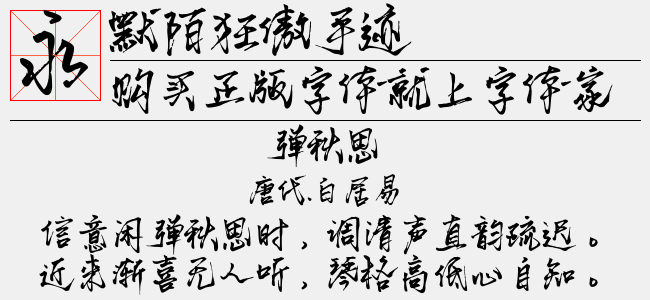 永
默陌狂傲手迹
购买正版字体就上字体家
弹秋思
唐代.白居易
信意闲弹秋思时，调清声直韵疏迟。
近来渐喜无人听，琴格高低心自知。